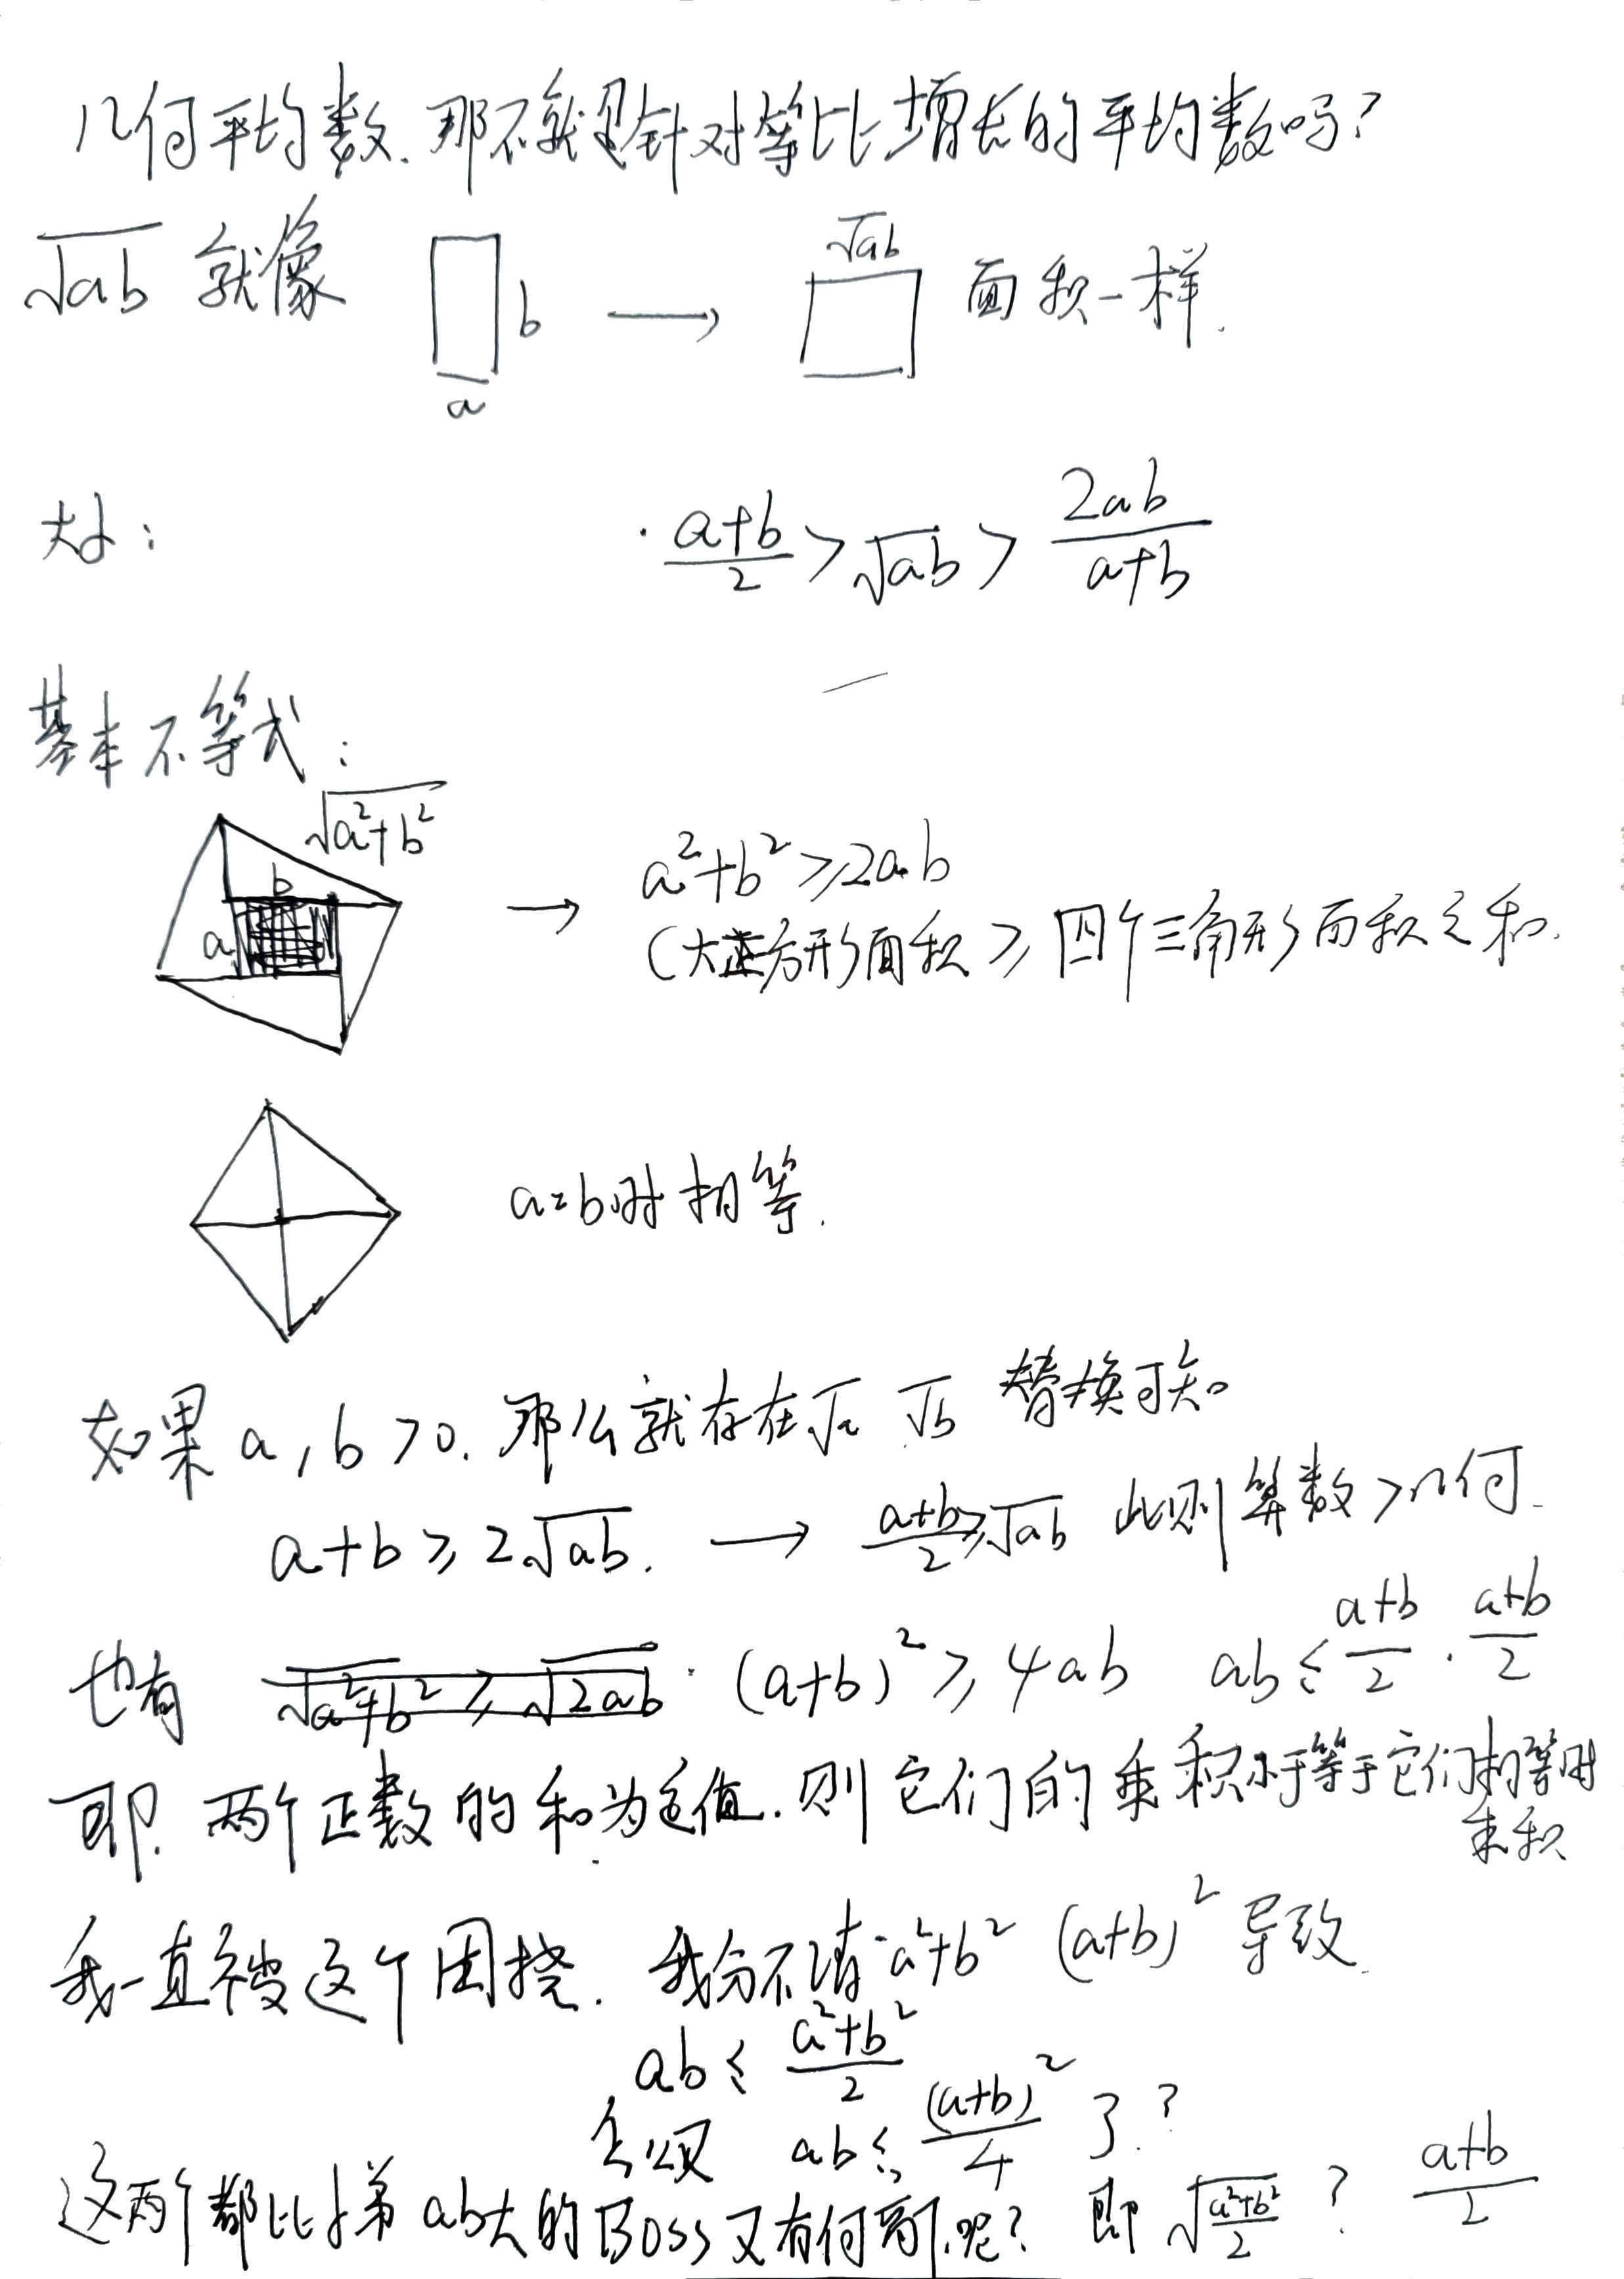 几何平均数.那不就是针对等比增长的平均数吗?
√ab 就像 a b → √ab 面积一样.
大小: a+b/2 > √ab > 2ab/a+b
基本不等式:
√a²+b²
b
a
→ a²+b²≥2ab
(大正方形面积≥四个三角形面积之和.
a=b时相等.
如果a,b>0.那么就存在√a √b 替换可知
a+b≥2√ab. → a+b/2≥√ab 此则算数>几何.
也有 √a²+b² ≥ √2ab . (a+b)²≥4ab ab≤a+b/2 · a+b/2
即.两个正数的和为定值.则它们的乘积小于等于它们相等时
乘积
我一直被这个困挠.我分不清a²+b² (a+b)²导致
ab≤a²+b²/2
ab≤(a+b)²/4 了??
这两个都比 ab大的Boss又有何 呢? 即√a²+b²/2 ? a+b/2